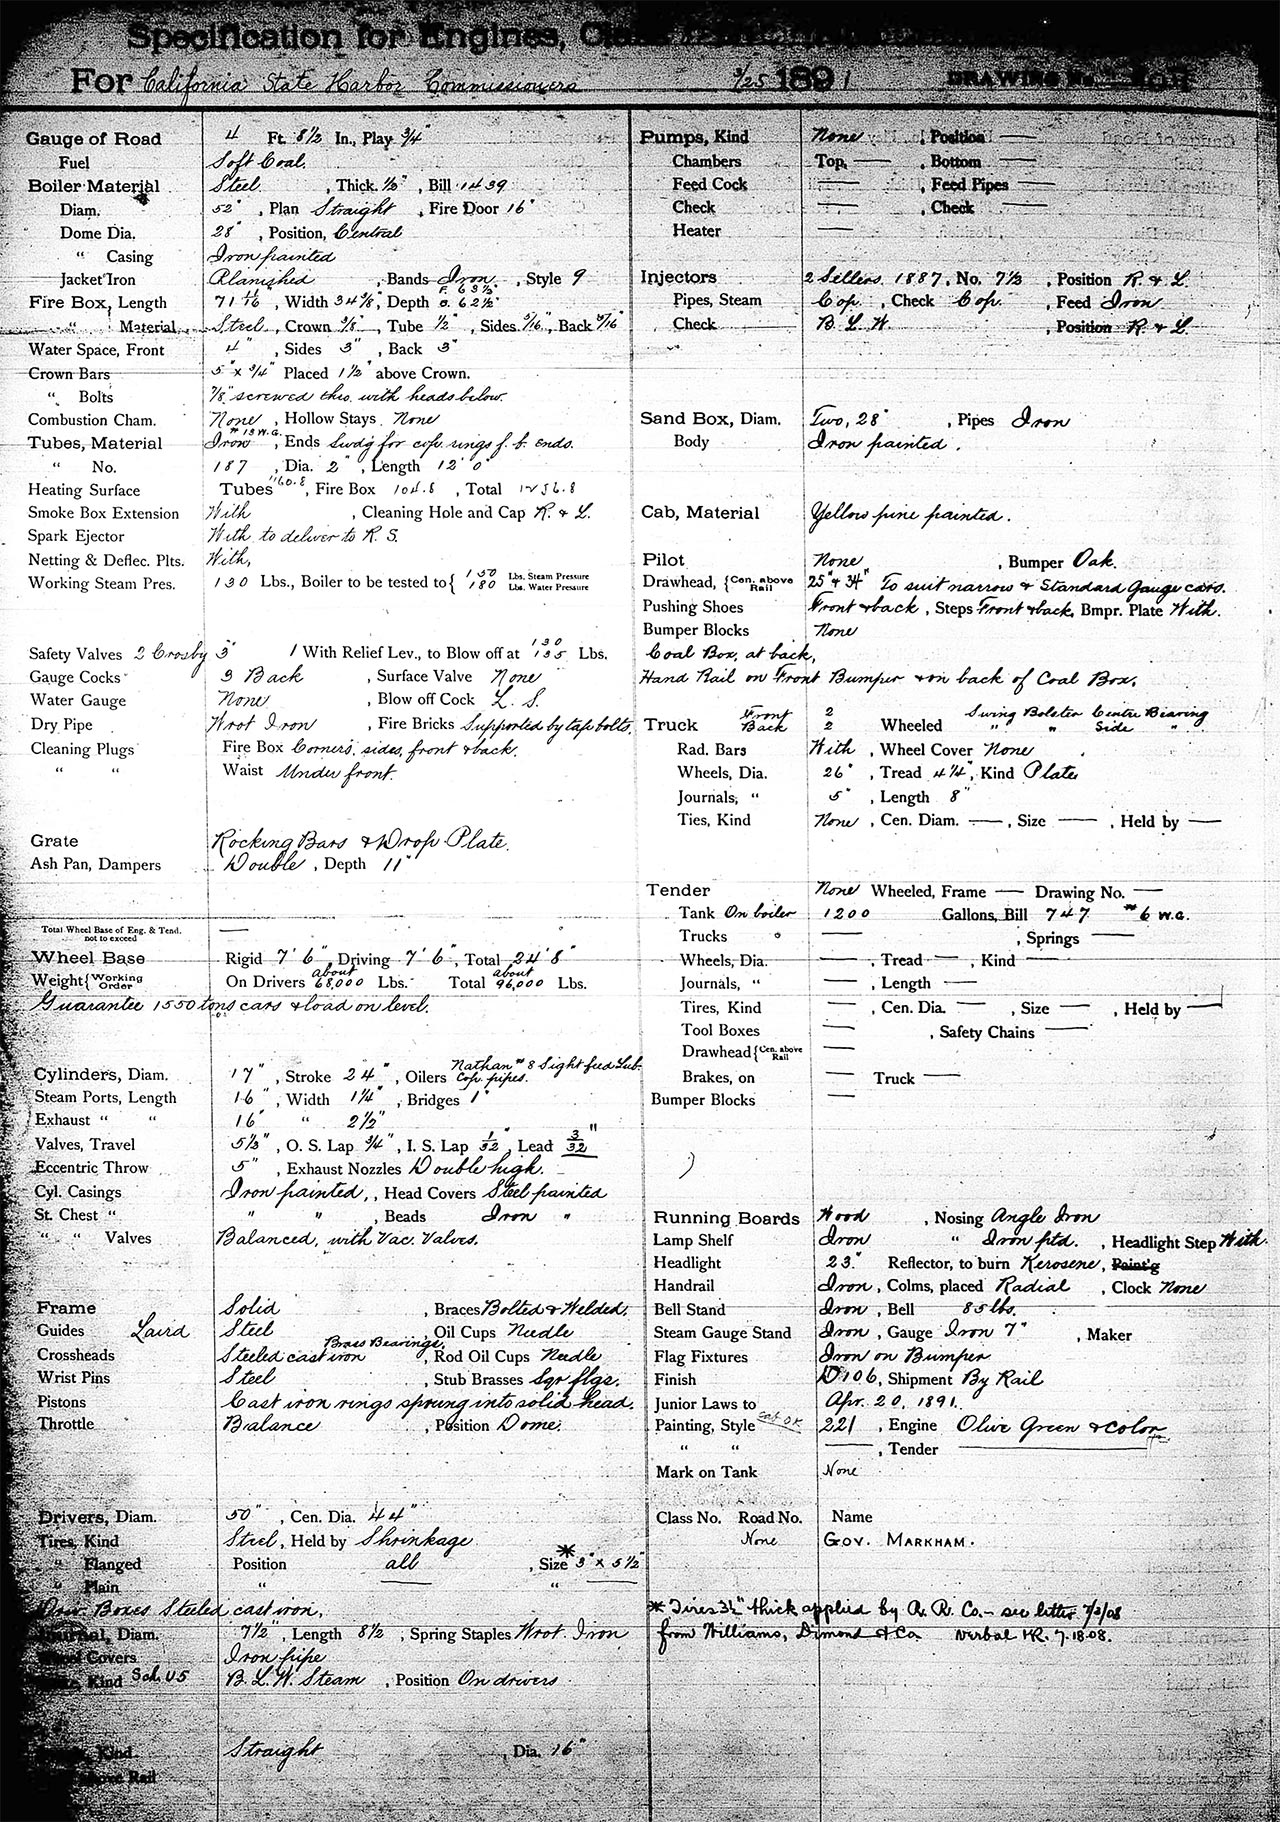 Specification for Engines,
For California State Harbor Commissioners 3/25 1891 DRAWING No.
Gauge of Road 4 Ft. 8½ In., Play ¾"
Fuel Soft Coal.
Boiler Material Steel, Thick. ½", Bill 1439
Diam. 52", Plan Straight, Fire Door 16"
Dome Dia. 28", Position, Central
" Casing Iron painted
Jacket Iron Planished, Bands Iron, Style 9
Fire Box, Length 71 1/16", Width 34⅜", Depth F. 63½" B. 62½"
" Material Steel, Crown ⅜", Tube ½", Sides 5/16", Back 5/16"
Water Space, Front 4", Sides 3", Back 3"
Crown Bars 5" x ¾" Placed 1½" above Crown.
" Bolts ⅞" screwed thro. with heads below.
Combustion Cham. None, Hollow Stays None
Tubes, Material Iron #13 W.G., Ends Swdg for cop. rings f. b. ends.
" No. 187, Dia. 2", Length 12' 0"
Heating Surface Tubes 1160.8, Fire Box 104.8, Total
Smoke Box Extension With, Cleaning Hole and Cap R. & L.
Spark Ejector With to deliver to R. S.
Netting & Deflec. Plts. With,
Working Steam Pres. 130 Lbs., Boiler to be tested to { 150 Lbs. Steam Pressure 180 Lbs. Water Pressure
Safety Valves 2 Crosby 3" 1 With Relief Lev., to Blow off at 130 135 Lbs.
Gauge Cocks 3 Back, Surface Valve None
Water Gauge None, Blow off Cock L. S.
Dry Pipe Wrot Iron, Fire Bricks Supported by tap bolts.
Cleaning Plugs Fire Box Corners, sides, front & back.
" " Waist Under front.
Grate Rocking Bars & Drop Plate.
Ash Pan, Dampers Double, Depth 11"
Total Wheel Base of Eng. & Tend. not to exceed —
Wheel Base Rigid 7' 6", Driving 7' 6", Total 24' 8"
Weight { Working Order On Drivers about 68,000 Lbs. Total about 96,000 Lbs.
Guarantee 1550 tons cars & load on level.
Cylinders, Diam. 17", Stroke 24", Oilers Nathan #8 Sight feed Lub. Cop. pipes.
Steam Ports, Length 16", Width 1¼", Bridges 1"
Exhaust " " 16" " 2½"
Valves, Travel 5½", O. S. Lap ¾", I. S. Lap 1/32", Lead 3/32"
Eccentric Throw 5", Exhaust Nozzles Double high.
Cyl. Casings Iron painted, , Head Covers Steel painted
St. Chest " " " , Beads Iron "
" " Valves Balanced, with Vac. Valves.
Frame Solid, Braces Bolted & Welded.
Guides Laird Steel Oil Cups Needle
Crossheads Steeled cast iron Brass Bearings, Rod Oil Cups Needle
Wrist Pins Steel, Stub Brasses Sqr flgs.
Pistons Cast iron rings sprung into solid head.
Throttle Balance, Position Dome.
Drivers, Diam. 50", Cen. Dia. 44"
Tires, Kind Steel, Held by Shrinkage
" Flanged Position all, Size * 3" x 5½"
" Plain " — " —
Driv. Boxes Steeled cast iron,
Journal, Diam. 7½, Length 8½, Spring Staples Wrot. Iron
Wheel Covers Iron pipe
Kind Sch. U5 B. L. W. Steam, Position On drivers
Kind Straight, Dia. 16"
above Rail
Pumps, Kind None, Position —
Chambers Top, —, Bottom —
Feed Cock —, Feed Pipes —
Check —, Check —
Heater —
Injectors 2 Sellers 1887, No. 7½, Position R. & L.
Pipes, Steam Cop., Check Cop., Feed Iron
Check B. L. W., Position R. & L.
Sand Box, Diam. Two, 28", Pipes Iron
Body Iron painted.
Cab, Material Yellow pine painted.
Pilot None, Bumper Oak.
Drawhead, { Cen. above Rail 25" & 34" To suit narrow & Standard Gauge cars.
Pushing Shoes Front & back, Steps Front & back, Bmpr. Plate With.
Bumper Blocks None
Coal Box, at back,
Hand Rail on Front Bumper & on back of Coal Box.
Truck Front 2 Wheeled Swing Bolster Centre Bearing
Back 2 " " Side "
Rad. Bars With, Wheel Cover None
Wheels, Dia. 26", Tread 4¼", Kind Plate
Journals, " 5", Length 8"
Ties, Kind None, Cen. Diam. —, Size —, Held by —
Tender None Wheeled, Frame — Drawing No. —
Tank On boiler 1200 Gallons, Bill 747 #6 W.G.
Trucks —, Springs —
Wheels, Dia. —, Tread —, Kind —
Journals, " —, Length —
Tires, Kind —, Cen. Dia. —, Size —, Held by —
Tool Boxes —, Safety Chains —
Drawhead { Cen. above Rail —
Brakes, on — Truck —
Bumper Blocks —
Running Boards Wood, Nosing Angle Iron
Lamp Shelf Iron " Iron ptd., Headlight Step With.
Headlight 23" Reflector, to burn Kerosene, Paint'g
Handrail Iron, Colms, placed Radial, Clock None
Bell Stand Iron, Bell 85 lbs.
Steam Gauge Stand Iron, Gauge Iron 7", Maker
Flag Fixtures Iron on Bumper
Finish D106, Shipment By Rail
Junior Laws to Apr. 20, 1891.
Painting, Style 221, Engine Olive Green & color
" " —, Tender —
Mark on Tank None
Class No. Road No. Name
None GOV. MARKHAM.
* Tires 3½" thick applied by A. R. Co. – see letter 7/2/08
from Williams, Dimond & Co. Verbal HR. 7.18.08.